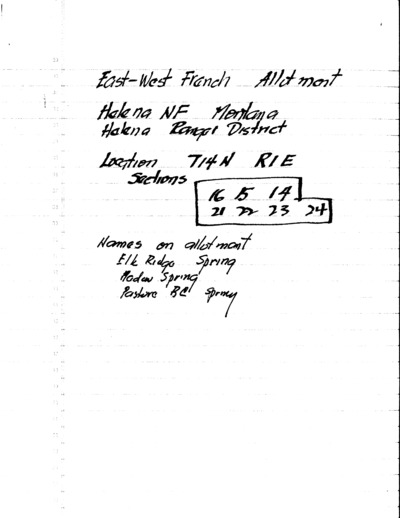 East-West French Allotment
Helena NF Montana
Helena Ranger District
Location T14N R1E
Sections
16 15 14
21 22 23 24
Names on allotment
Elk Ridge Spring
Meadow Spring
Pasture BC Spring